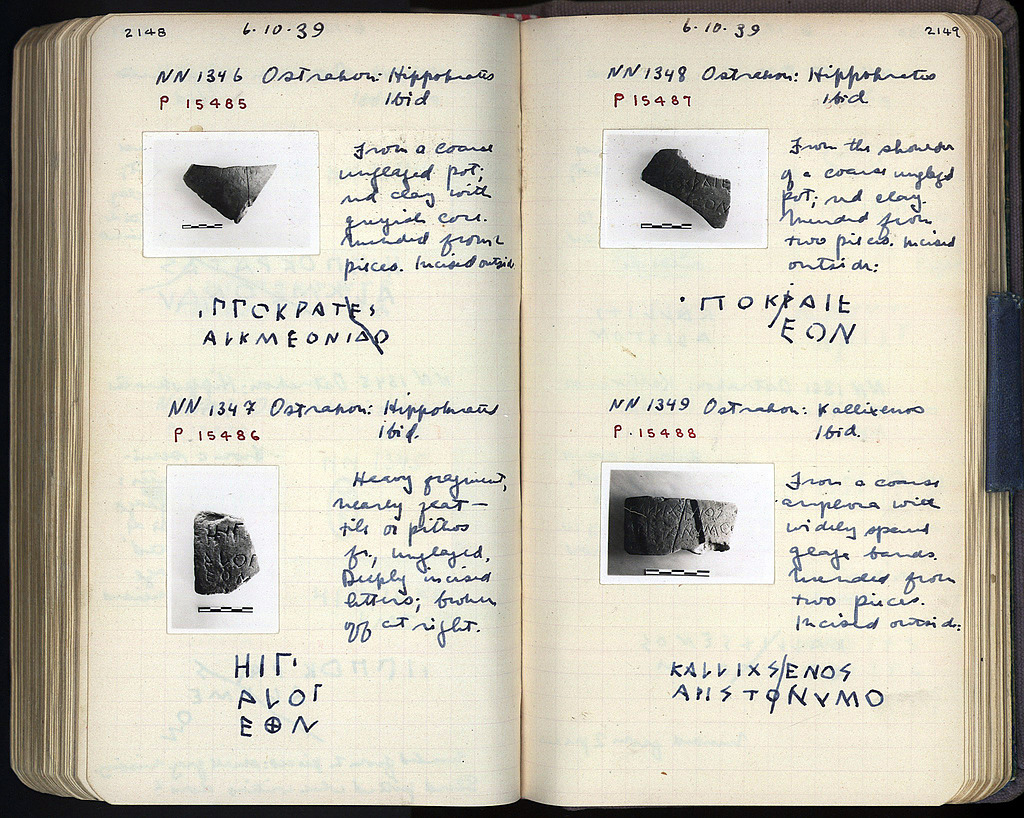 2148
6·10·39
NN 1346 Ostrakon: Hippokrates
P 15485 Ibid
From a coarse
unglazed pot;
red clay with
greyish core.
Mended from 2
pieces. Incised outside
.ΠΓΟΚΡΑΤΕS
ΑΙΚΜΕΟΝΙΔΟ
NN 1347 Ostrakon: Hippokrates
P 15486 Ibid.
Heavy fragment,
nearly flat —
tile or pithos
fr., unglazed.
Deeply incised
letters; broken
off at right.
ΗΙΓ·
ΑLΟΓ
Ε⊕Ν
6·10·39
2149
NN 1348 Ostrakon: Hippokrates
P 15487 Ibid
From the shoulder
of a coarse unglazed
pot; red clay.
Mended from
two pieces. Incised
outside:
·ΠΟΚΡΑΙΕ
ΕΟΝ
NN 1349 Ostrakon: Kallixenos
P. 15488 Ibid.
From a coarse
amphora with
widely spaced
glaze bands.
Mended from
two pieces.
Incised outside:
ΚΑLLΙΧSΕΝΟS
ΑΠSΤΟΝVΜΟ